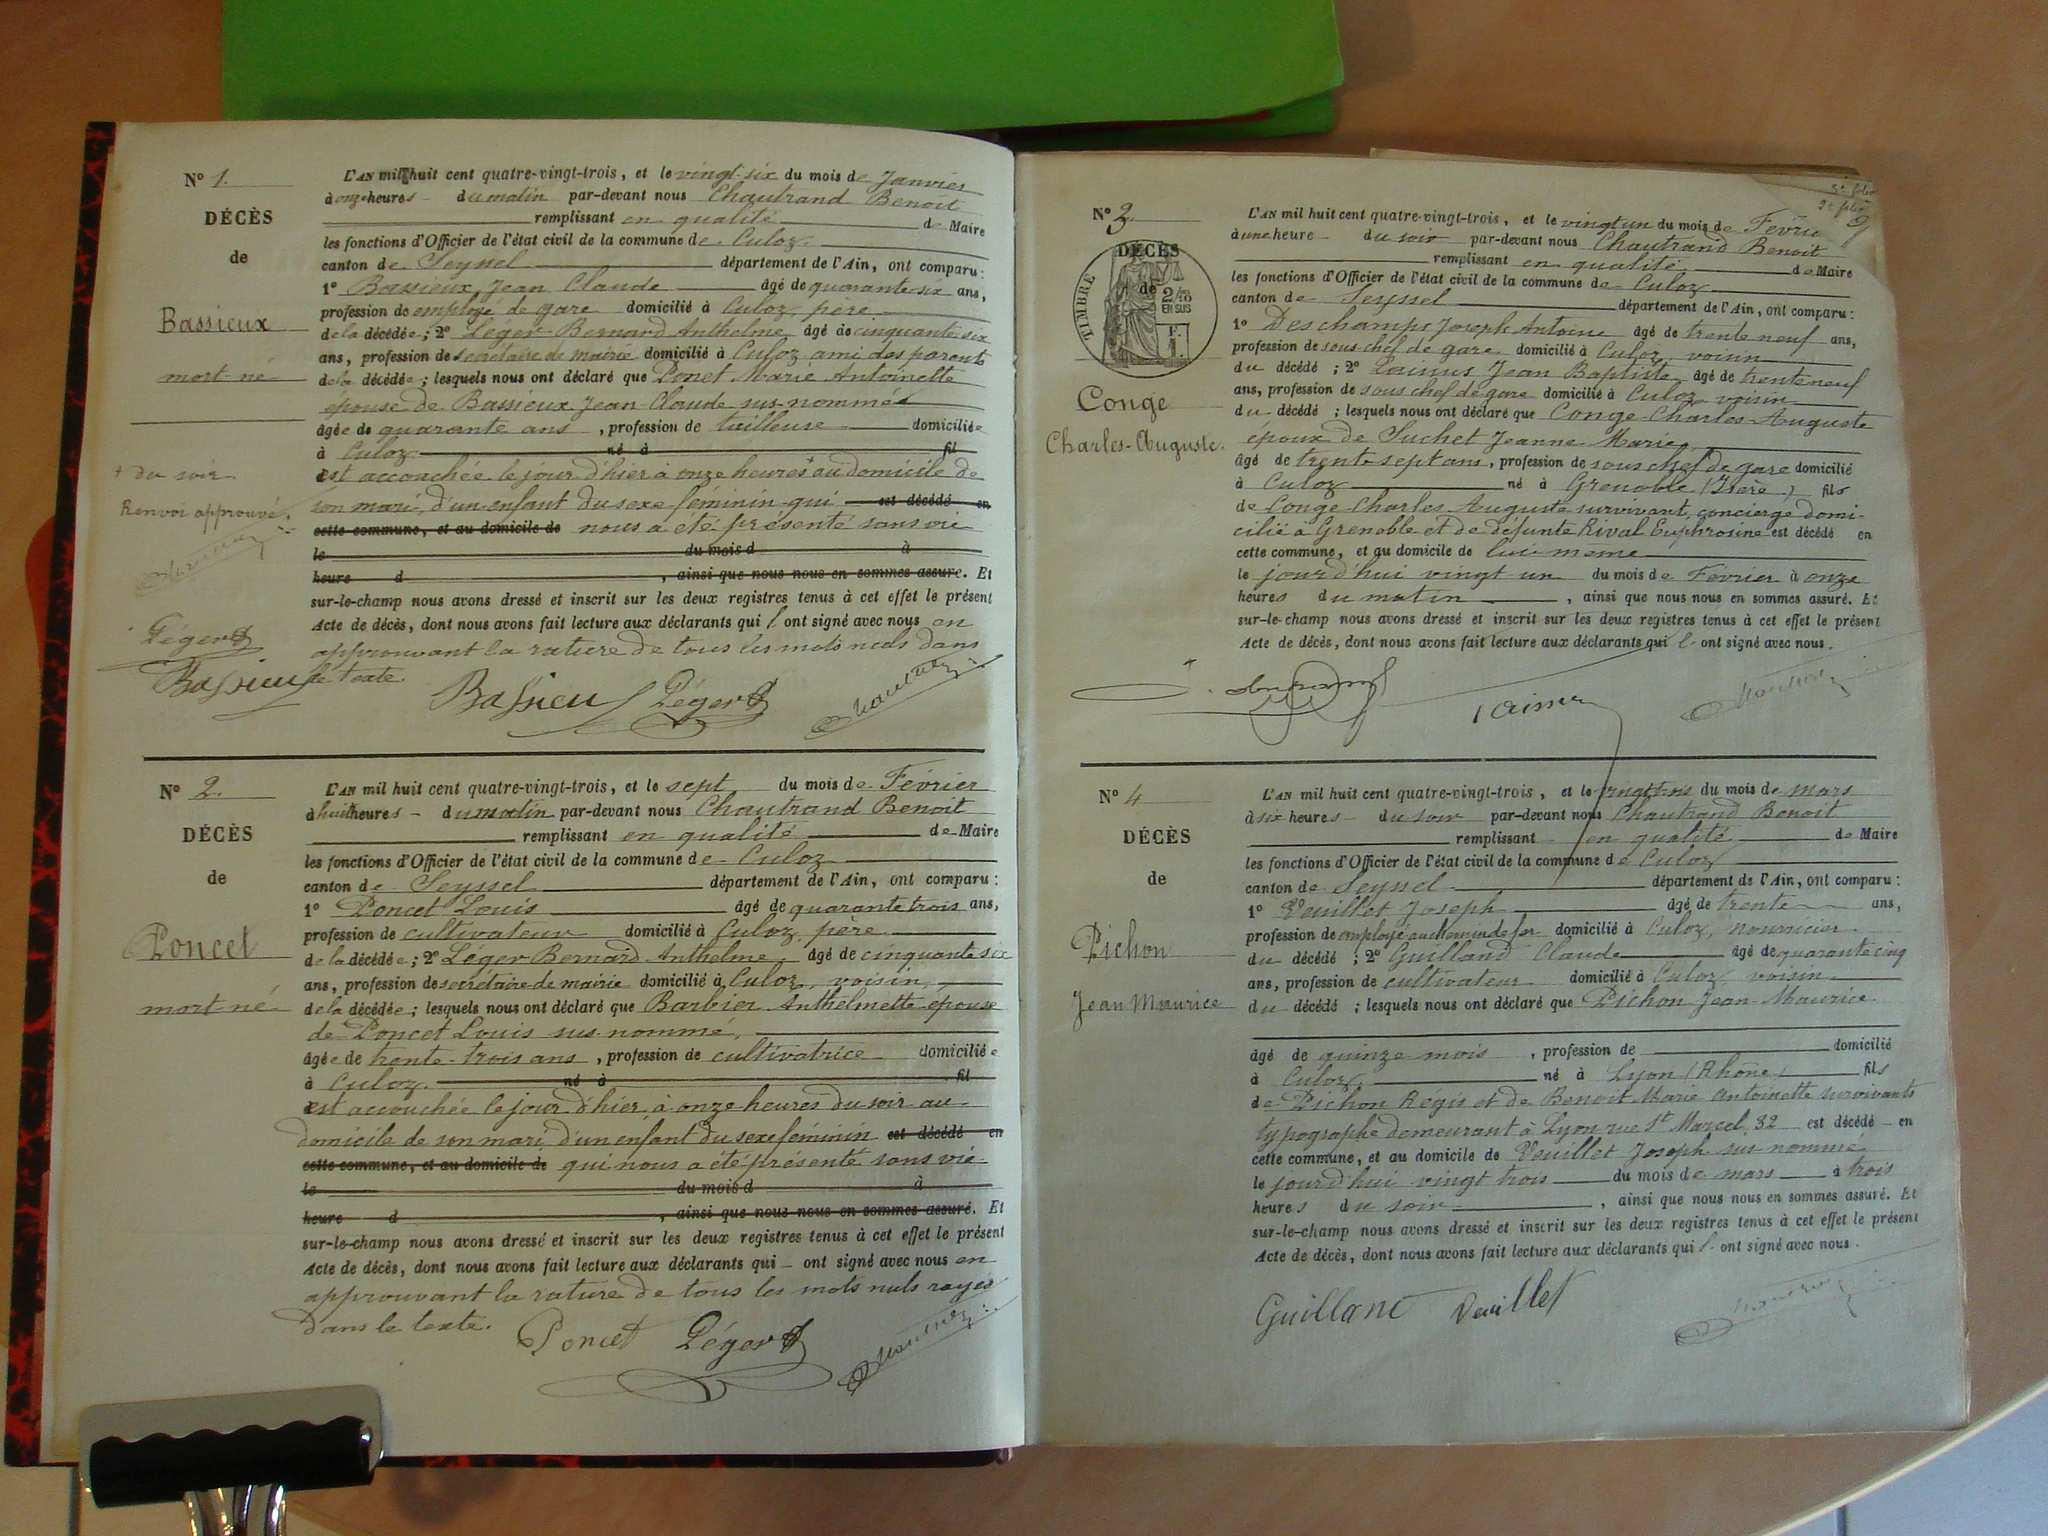 N° 1.
DÉCÈS
de
Bassieux
mort-né
+ du soir
Renvoi approuvé.
Léger
Bassieux
L'AN mil huit cent quatre-vingt-trois, et le vingt-six du mois de Janvier
à onze heures du matin par-devant nous Chautrand Benoit
remplissant en qualité de Maire
les fonctions d'Officier de l'état civil de la commune de Culoz
canton de Seyssel département de l'Ain, ont comparu :
1° Bassieux Jean Claude âgé de quarante-six ans,
profession de employé de gare domicilié à Culoz, père
de la décédée ; 2° Léger Bernard Anthelme, âgé de cinquante six
ans, profession de secrétaire de mairie domicilié à Culoz ami des parents
de la décédée ; lesquels nous ont déclaré que Ponet Marie Antoinette
épouse de Bassieux Jean-Claude sus-nommé
âgée de quarante ans, profession de tailleuse domiciliée
à Culoz né à fil
est accouchée le jour d'hier à onze heures + au domicile de
son mari, d'un enfant du sexe féminin qui est décédé en
cette commune, et au domicile de nous a été présenté sans vie
le du mois d à
heure d , ainsi que nous nous en sommes assuré. Et
sur-le-champ nous avons dressé et inscrit sur les deux registres tenus à cet effet le présent
Acte de décès, dont nous avons fait lecture aux déclarants qui l'ont signé avec nous en
approuvant la rature de tous les mots nuls dans
le texte.
Bassieux Léger
N° 2.
DÉCÈS
de
Poncet
mort-né
L'AN mil huit cent quatre-vingt-trois, et le sept du mois de Février
à huit heures du matin par-devant nous Chautrand Benoit
remplissant en qualité de Maire
les fonctions d'Officier de l'état civil de la commune de Culoz
canton de Seyssel département de l'Ain, ont comparu :
1° Poncet Louis âgé de quarante trois ans,
profession de cultivateur domicilié à Culoz, père
de la décédée ; 2° Léger Bernard Anthelme, âgé de cinquante six
ans, profession de secrétaire de mairie domicilié à Culoz, voisin,
de la décédée ; lesquels nous ont déclaré que Barbier Anthelmette épouse
de Poncet Louis sus-nommé,
âgée de trente-trois ans, profession de cultivatrice domiciliée
à Culoz né à fil
est accouchée le jour d'hier, à onze heures du soir au
domicile de son mari, d'un enfant du sexe féminin est décédé en
cette commune, et au domicile de qui nous a été présenté sans vie
le du mois d à
heure d , ainsi que nous nous en sommes assuré. Et
sur-le-champ nous avons dressé et inscrit sur les deux registres tenus à cet effet le présent
Acte de décès, dont nous avons fait lecture aux déclarants qui ont signé avec nous en
approuvant la rature de tous les mots nuls rayés
dans le texte.
Poncet Léger
N° 3.
DÉCÈS
de
TIMBRE
2/10
EN SUS
Conge
Charles-Auguste.
L'AN mil huit cent quatre-vingt-trois, et le vingt un du mois de Févrie
à une heure du soir par-devant nous Chautrand Benoit
remplissant en qualité de Maire
les fonctions d'Officier de l'état civil de la commune de Culoz
canton de Seyssel département de l'Ain, ont comparu :
1° Deschamps Joseph Antoine âgé de trente neuf ans,
profession de sous chef de gare domicilié à Culoz, voisin
du décédé ; 2° Jean Baptiste âgé de trente neuf
ans, profession de sous chef de gare domicilié à Culoz voisin
du décédé ; lesquels nous ont déclaré que Conge Charles-Auguste
époux de Suchet Jeanne-Marie,
âgé de trente sept ans, profession de sous chef de gare domicilié
à Culoz né à Grenoble (Isère) fils
de Conge Charles Auguste survivant, concierge domi-
cilié à Grenoble et de défunte Rival Euphrosine est décédé en
cette commune, et au domicile de lui-même
le jour d'hui vingt-un du mois de Février à onze
heures du matin , ainsi que nous nous en sommes assuré. Et
sur-le-champ nous avons dressé et inscrit sur les deux registres tenus à cet effet le présent
Acte de décès, dont nous avons fait lecture aux déclarants qui l'ont signé avec nous.
N° 4
DÉCÈS
de
Pichon
Jean Maurice
L'AN mil huit cent quatre-vingt-trois, et le vingt-trois du mois de mars
à six heures du soir par-devant nous Chautrand Benoit
remplissant en qualité de Maire
les fonctions d'Officier de l'état civil de la commune de Culoz
canton de Seyssel département de l'Ain, ont comparu :
1° Veuillet Joseph âgé de trente ans,
profession de employé au chemin de fer domicilié à Culoz, nourricier
du décédé ; 2° Guilland Claude âgé de quarante cinq
ans, profession de cultivateur domicilié à Culoz, voisin
du décédé ; lesquels nous ont déclaré que Pichon Jean-Maurice
âgé de quinze mois, profession de domicilié
à Culoz né à Lyon (Rhône) fils
de Pichon Régis et de Benoit Marie Antoinette survivants
typographe demeurant à Lyon rue St Marcel, 32 est décédé en
cette commune, et au domicile de Veuillet Joseph sus-nommé
le jour d'hui vingt trois du mois de mars à trois
heures du soir , ainsi que nous nous en sommes assuré. Et
sur-le-champ nous avons dressé et inscrit sur les deux registres tenus à cet effet le présent
Acte de décès, dont nous avons fait lecture aux déclarants qui l'ont signé avec nous.
Guilland Veuillet